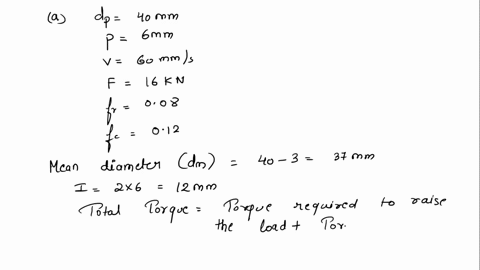 (a) dp = 40 mm
p = 6mm
V = 60 mm/s
F = 16 KN
fr = 0.08
fc = 0.12
Mean diameter (dm) = 40 - 3 = 37 mm
I = 2x6 = 12 mm
Total Torque = Torque required to raise
the load + Tor